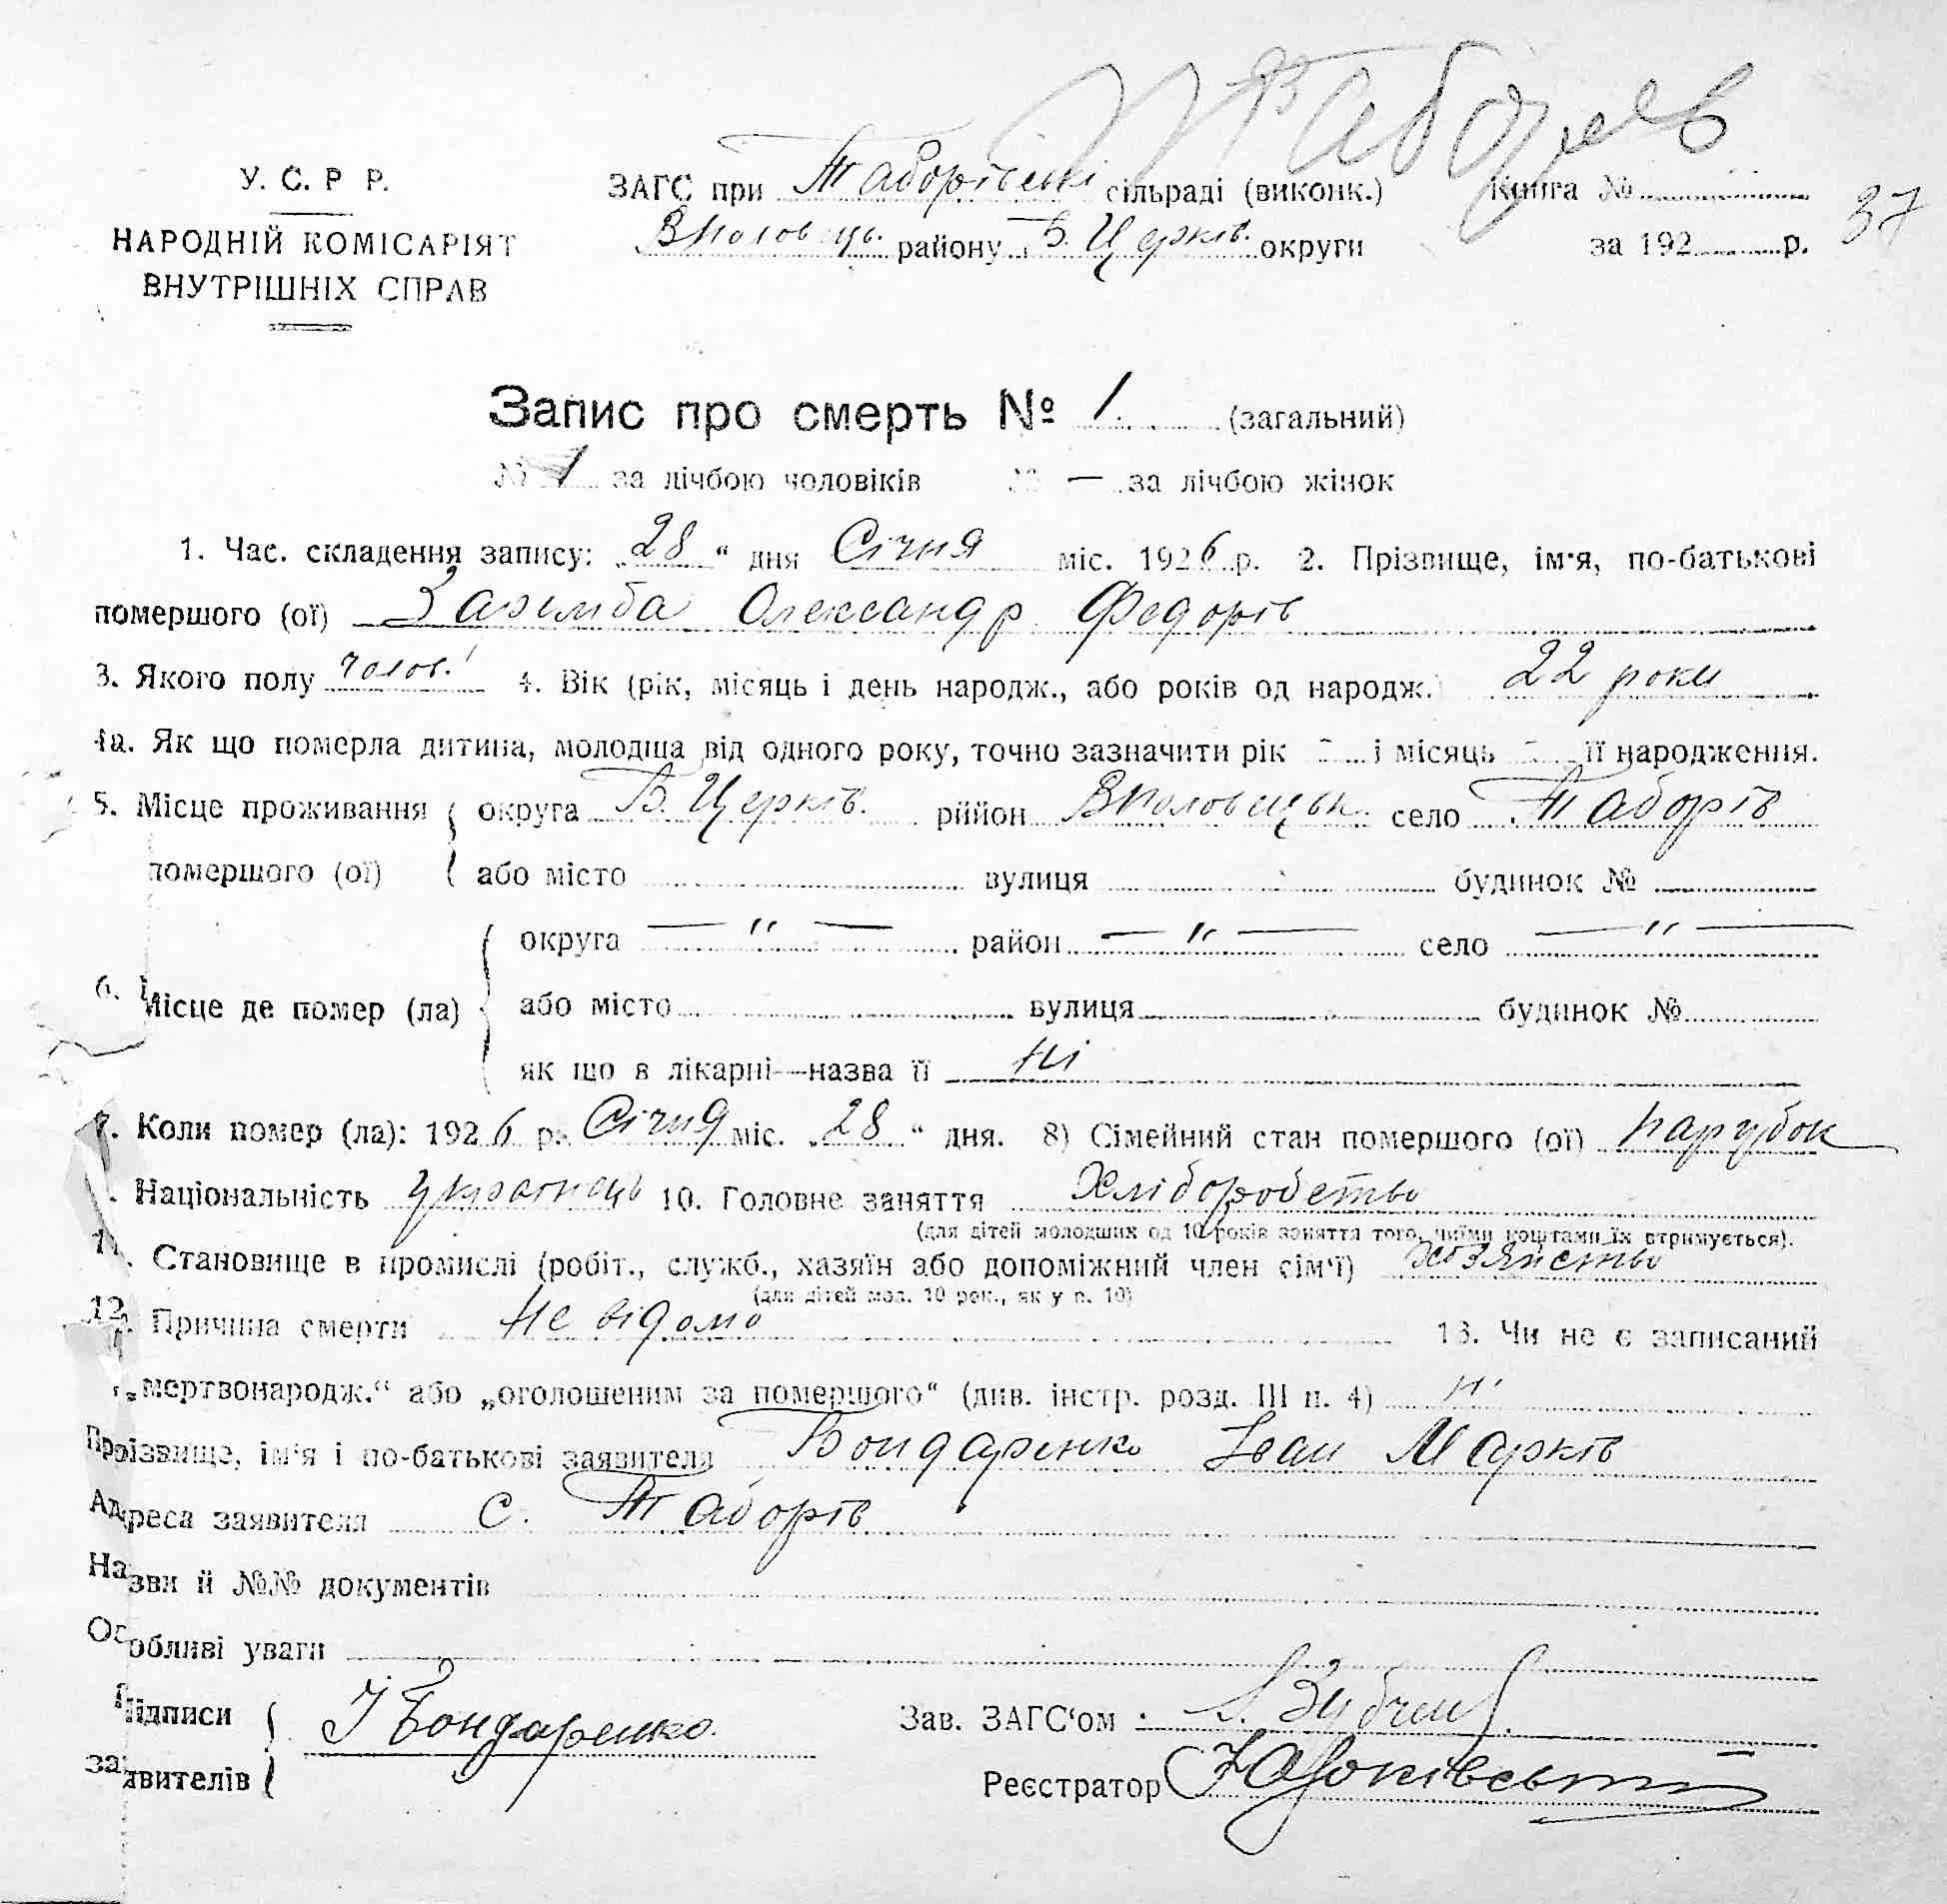 Таборів
У. С. Р Р.
НАРОДНІЙ КОМІСАРІЯТ
ВНУТРІШНІХ СПРАВ
ЗАГС при Таборівскі сільраді (виконк.) Книга №
Вполовець. району Б. Церків. округи за 192 р. 37
Запис про смерть № 1. (загальний)
№ 1 за лічбою чоловіків № — за лічбою жінок
1. Час. складення запису: „28“ дня Січня міс. 1926 р. 2. Прізвище, ім'я, по-батькові
помершого (ої) Заремба Олександр Федорів
3. Якого полу чолов. 4. Вік (рік, місяць і день народж., або років од народж.) 22 роки
4а. Як що померла дитина, молодша від одного року, точно зазначити рік - і місяць - її народження.
5. Місце проживання округа Б. Церків. рийон Вполовецьк. село Таборів
помершого (ої) або місто вулиця будинок №
округа — " — район — " — село — " —
6. Місце де помер (ла) або місто вулиця будинок №
як що в лікарні—назва її ні
7. Коли помер (ла): 1926 р. Січня міс. „28“ дня. 8) Сімейний стан помершого (ої) парубок
. Національність українець 10. Головне заняття хліборобство
(для дітей молодших од 10 років заняття того, чиїми коштами їх втримується).
11. Становище в промислі (робіт., служб., хазяїн або допоміжний член сім'ї) хозяйство
(для дітей мол. 10 рок., як у п. 10)
12. Причина смерти не відомо 13. Чи не є записаний
„мертвонародж.“ або „оголошеним за помершого“ (див. інстр. розд. III п. 4) ні
Прізвище, ім'я і по-батькові заявителя Бондаренко Іван Марків
Адреса заявителя с. Таборів
Назви й №№ документів
Особливі уваги
Підписи І Бондаренко. Зав. ЗАГС'ом
заявителів Реєстратор